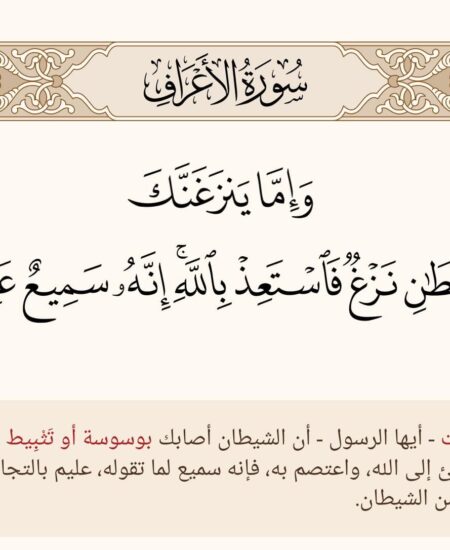 سُورَةُ الأَعْرَافِ
وَإِمَّا يَنزَغَنَّكَ
نَزْغٌ فَاسْتَعِذْ بِاللَّهِ ۚ إِنَّهُ سَمِيعٌ
- أيها الرسول - أن الشيطان أصابك بوسوسة أو تَثْبِيط
إلى الله، واعتصم به، فإنه سميع لما تقوله، عليم
الشيطان.